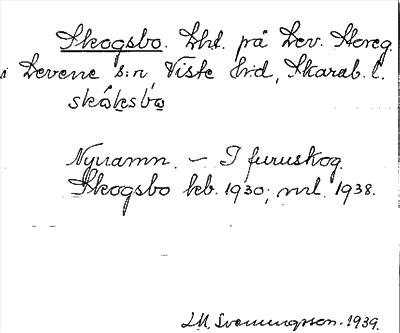 Skogsbo. Lht. på Lev. Storeg.
i Levene s:n Viste hrd, Skarab. l.
skåksbo
Nynamn. – I furuskog.
Skogsbo kb. 1930; mrl. 1938.
1939.